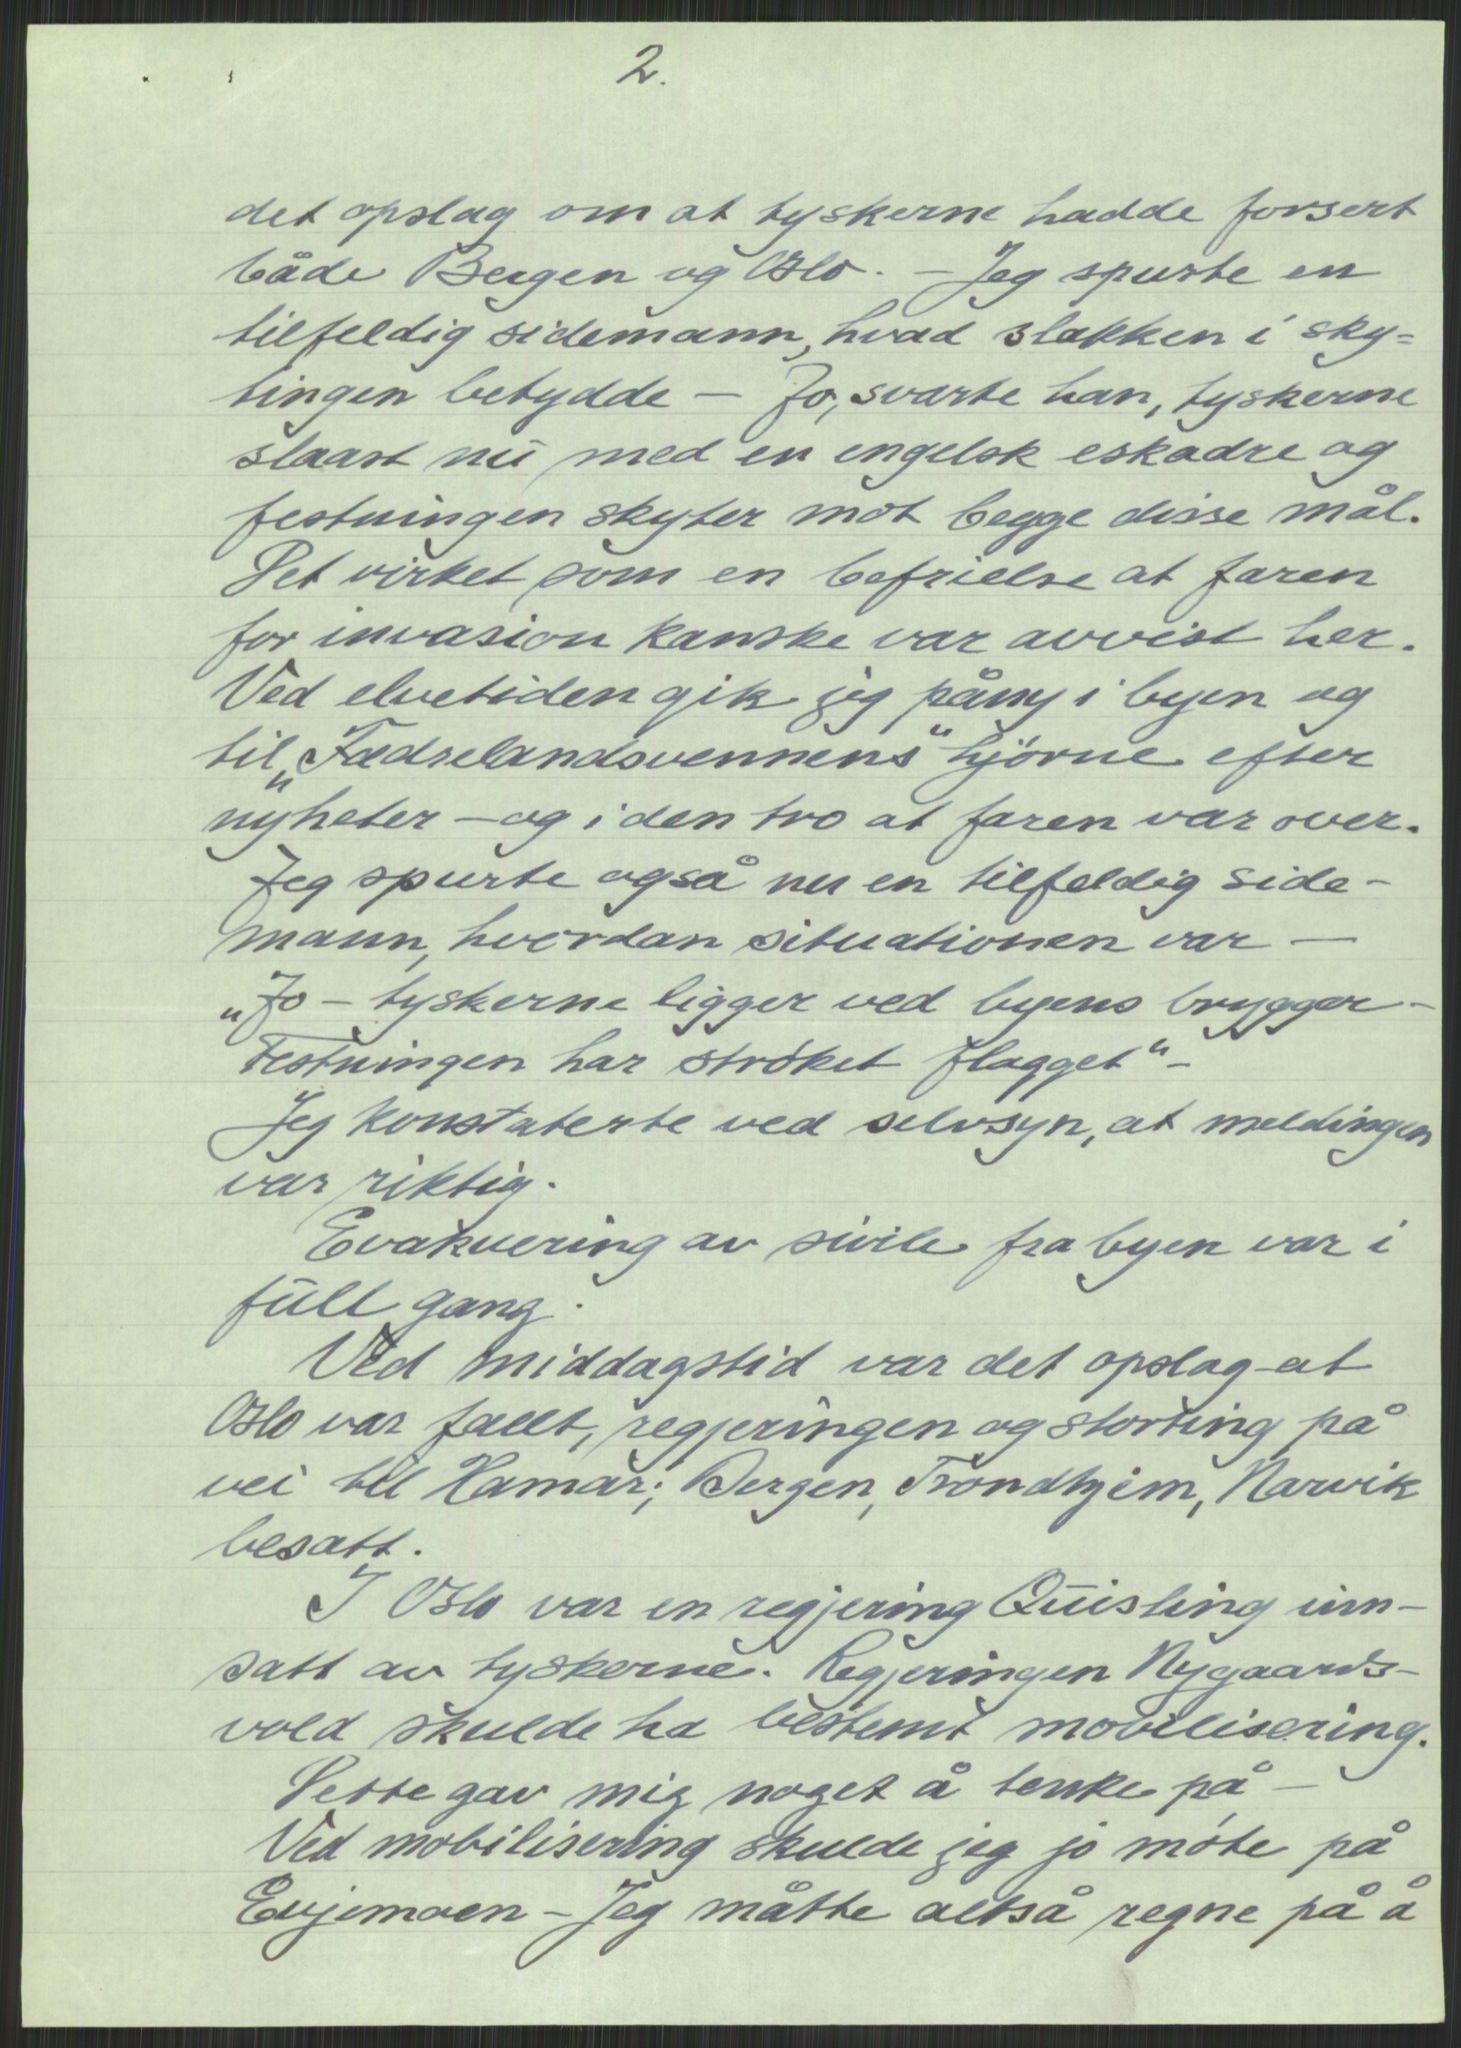 2.
det opslag om at tyskerne hadde forsert
både Bergen og Oslo. – Jeg spurte en
tilfeldig sidemann, hvad slakken i sky=
tingen betydde – Jo, svarte han, tyskerne
slaast nu med en engelsk eskadre og
festningen skyter mot begge disse mål.
Det virket som en befrielse at faren
for invasion kanske var avvist her.
Ved elvetiden gik jeg påny i byen og
til „Fædrelandsvennens“ hjörne efter
nyheter – og i den tro at faren var over.
Jeg spurte også nu en tilfeldig side-
mann, hvordan situationen var –
„Jo – tyskerne ligger ved byens brygger –
Festningen har ströket flagget“ –
Jeg konstaterte ved selvsyn, at meldingen
var riktig.
Evakuering av sivile fra byen var i
full gang.
Ved middagstid var det opslag at
Oslo var fallt, regjeringen og storting på
vei til Hamar; Bergen, Trondhjem, Narvik
besatt.
I Oslo var en regjering Quisling inn-
satt av tyskerne. Regjeringen Nygaards-
vold skulde ha bestemt mobilisering.
Dette gav mig noget å tenke på –
Ved mobilisering skulde jeg jo möte på
Evjemoen – Jeg måtte altså regne på å